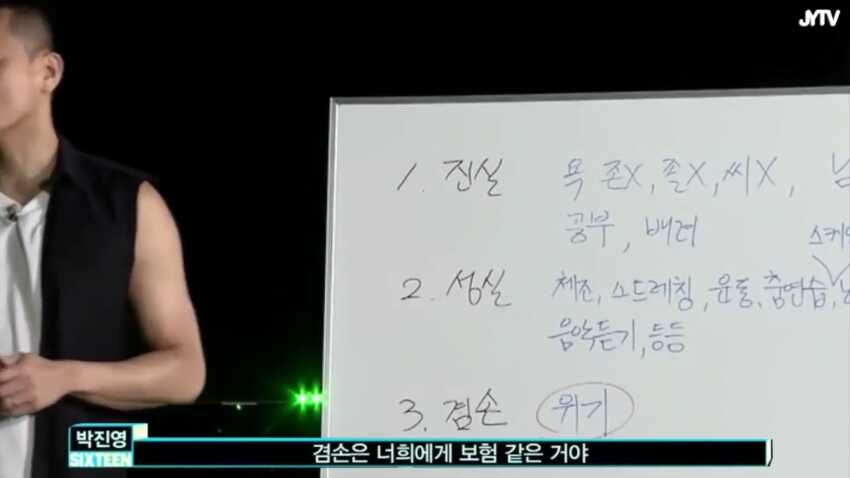 JYTV
1. 진실 욕 존X, 졸X, 씨X,
공부, 배려
2. 성실 체조, 스트레칭, 운동, 춤연습,
음악듣기, 등등
3. 겸손 위기
박진영
SIXTEEN
겸손은 너희에게 보험 같은 거야